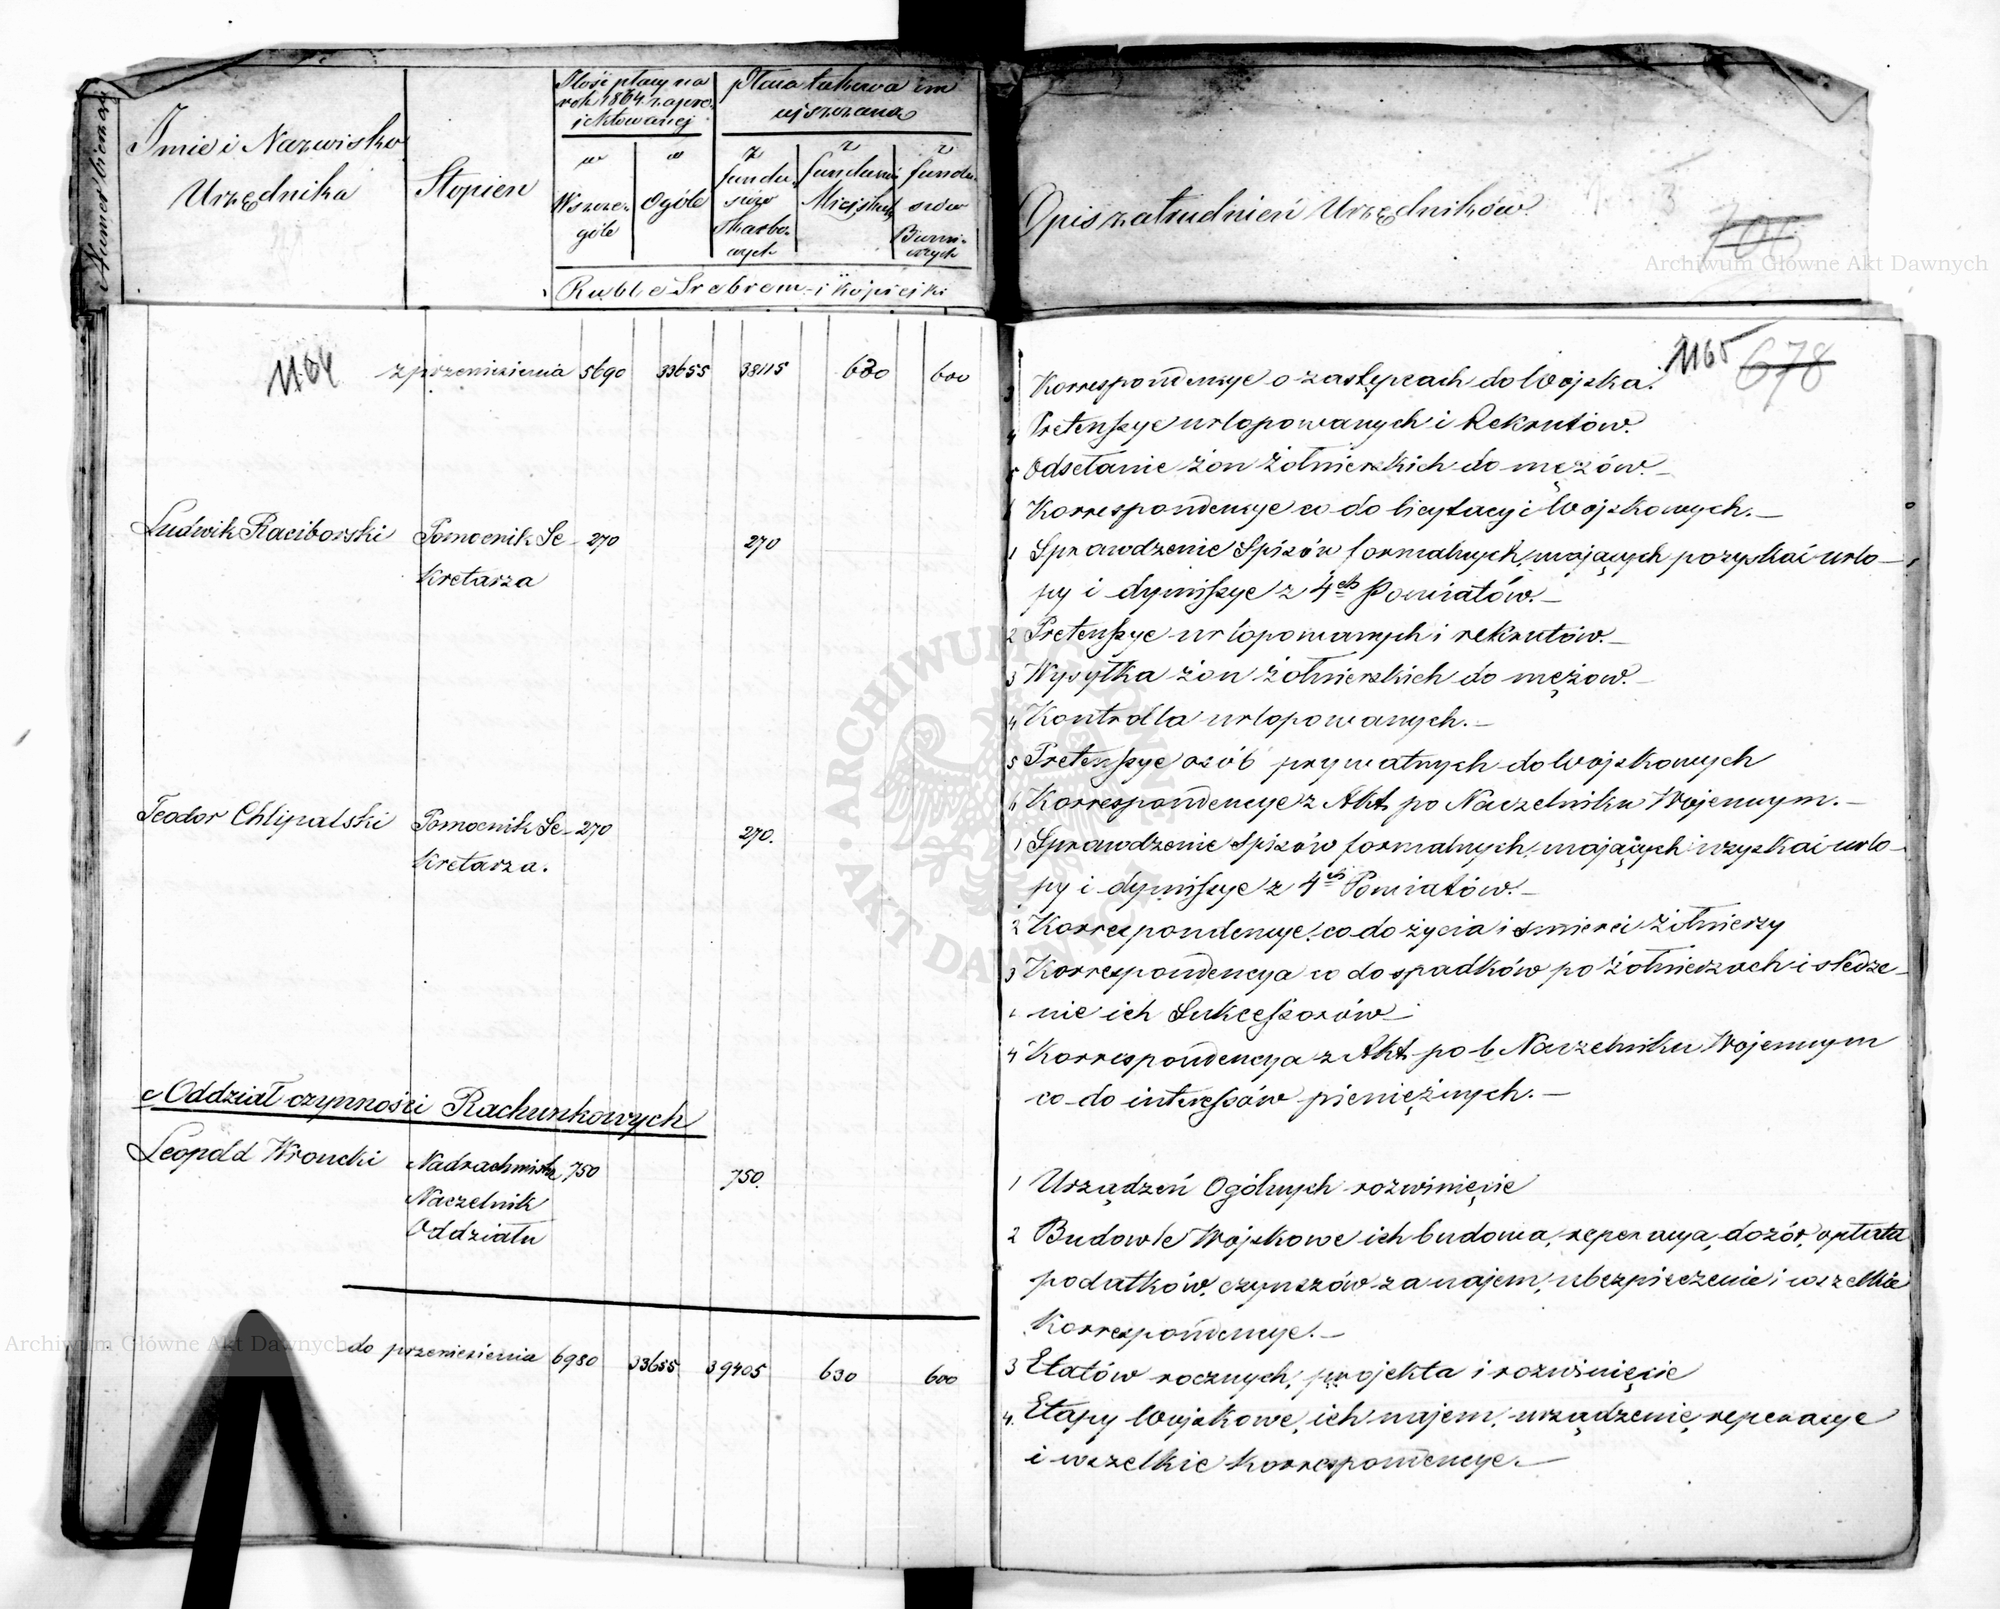 Numer bieżący
Imie i Nazwisko
Urzędnika
Stopien
Ilość płacy na
rok 1864 zapro-
jektowanej
w
Wszcze-
góle
w
Ogóle
Płaca takowa
z
fundu-
szów
Skarbo-
wych
z
fundusz
Miejskich
z
fundu-
szów
Ruble Srebrem i kopiejki
Opis zatrudnień Urzędników.
700
Archiwum Główne Akt Dawnych
1164
z przeniesienia 5690 33655 38115 630 600
Ludwik Raciborski Pomocnik Se- 270 270
kretarza
Teodor Chlipalski Pomocnik Se- 270 270.
kretarza.
c Oddział czynności Rachunkowych
Leopold Wroncki Nadrachmistrz 750 750.
Naczelnik
Oddziału
do przeniesienia 6980 33655 39405 630 600
Archiwum Główne Akt Dawnych
1165 678
3 Korrespondencye o zastępcach do Wojska.
4 Pretensye urlopowanych i Rekrutów.
5 Odsełanie żon żołnierskich do mężów.–
6 Korrespondencye co do licytacyi Wojskowych.–
1 Sprawdzenie Spisów formalnych, mających pozyskać urlo–
py i dymissye z 4ch Powiatów.–
2 Pretensye urlopowanych i rekrutów.–
3 Wysyłka żon żołnierskich do mężow.–
4 Kontrolla urlopowanych.–
5 Pretensye osób prywatnych do Wojskowych
6 Korrespondencye z Akt po Naczelniku Wojennym.–
1 Sprawdzenie Spisów formalnych, mających uzyskać urlo–
py i dymissye z 4ch Powiatów.–
2 Korrespondencye, co do życia i smierci żołnierzy
3 Korrespondencya co do spadków po żołnierzach i śledze–
nie ich Sukcessorów–
4 Korrespondencya z Akt po b. Naczelniku Wojennym
co do interessów pieniężnych.–
1 Urządzeń Ogólnych rozwinięcie
2 Budowle Wojskowe ich budowa, reperacya, dozór, opłata
podatków, czynszów za najem, ubezpieczenie i wszelkie
Korrespondencye.–
3 Etatów rocznych, projekta i rozwinięcie
4. Etapy Wojskowe, ich najem, urządzenie, reperacye
i wszelkie korrespondencye.–
ARCHIWUM GŁÓWNE AKT DAWNYCH